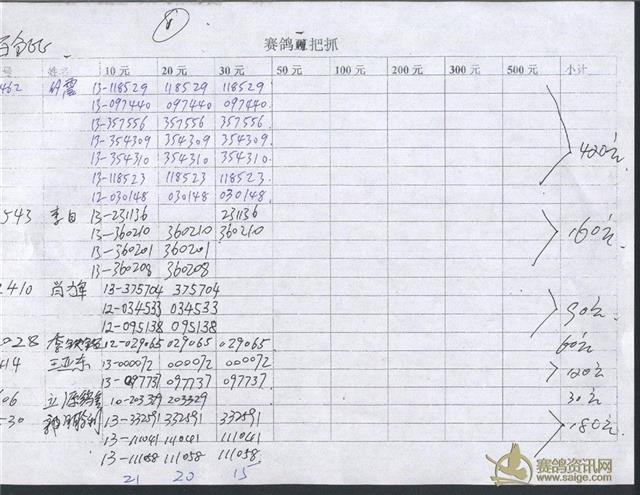 1
赛鸽 把抓
号 姓名 10元 20元 30元 50元 100元 200元 300元 500元 小计
462 13-118529 118529 118529
13-097440 097440 097440
13-357556 357556 357556
13-354309 354309 354309
13-354310 354310 354310 420元
13-118523 118523 118523
12-030148 030148 030148
543 李日 13-231136 231136
13-360210 360210 360210 160元
13-360201 360201
13-360208 360208
410 尚辉 13-375704 375704
12-034533 034533 90元
12-095138 095138
028 12-029065 029065 029065 60元
414 王亚东 13-000072 000072 000072 120元
13-097737 097737 097737
06 10-203329 203329 30元
-30 13-332591 332591 332591 180元
13-111041 111041 111041
13-111058 111058 111058
21 20 15
赛鸽资讯网
www.saige.com